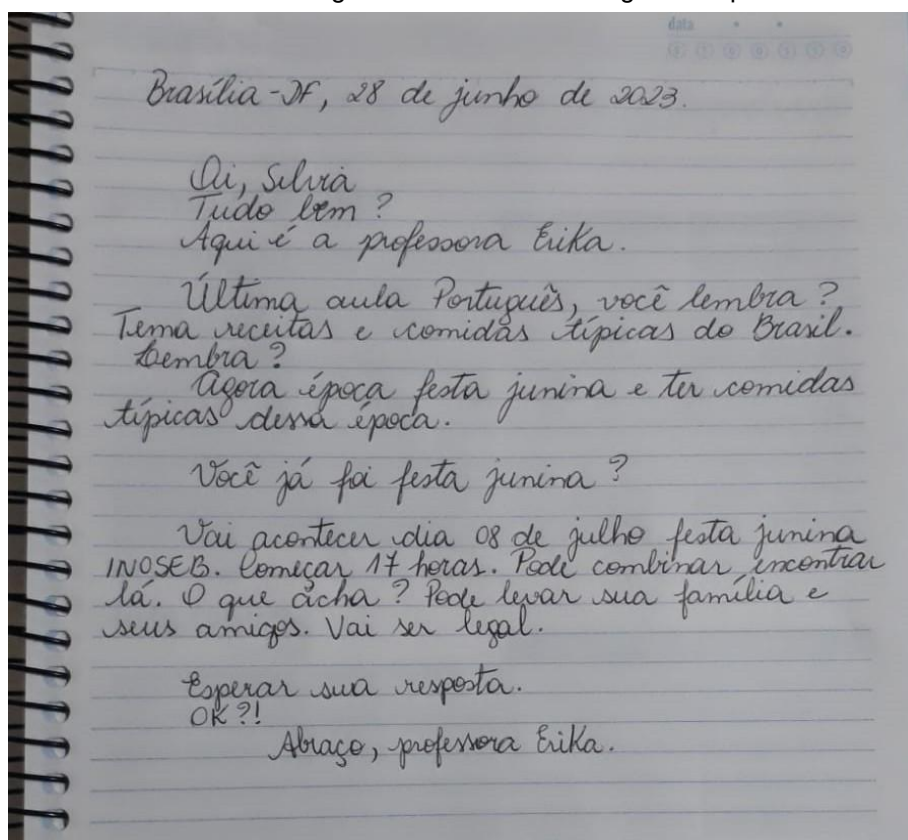 data
Brasília-DF, 28 de junho de 2023.
Oi, Silvia
Tudo bem?
Aqui é a professora Erika.
Última aula Português, você lembra?
Tema receitas e comidas típicas do Brasil.
Lembra?
Agora época festa junina e ter comidas
típicas dessa época.
Você já foi festa junina?
Vai acontecer dia 08 de julho festa junina
INOSEB. Começar 17 horas. Pode combinar encontrar
lá. O que acha? Pode levar sua família e
seus amigos. Vai ser legal.
Esperar sua resposta.
OK?!
Abraço, professora Erika.